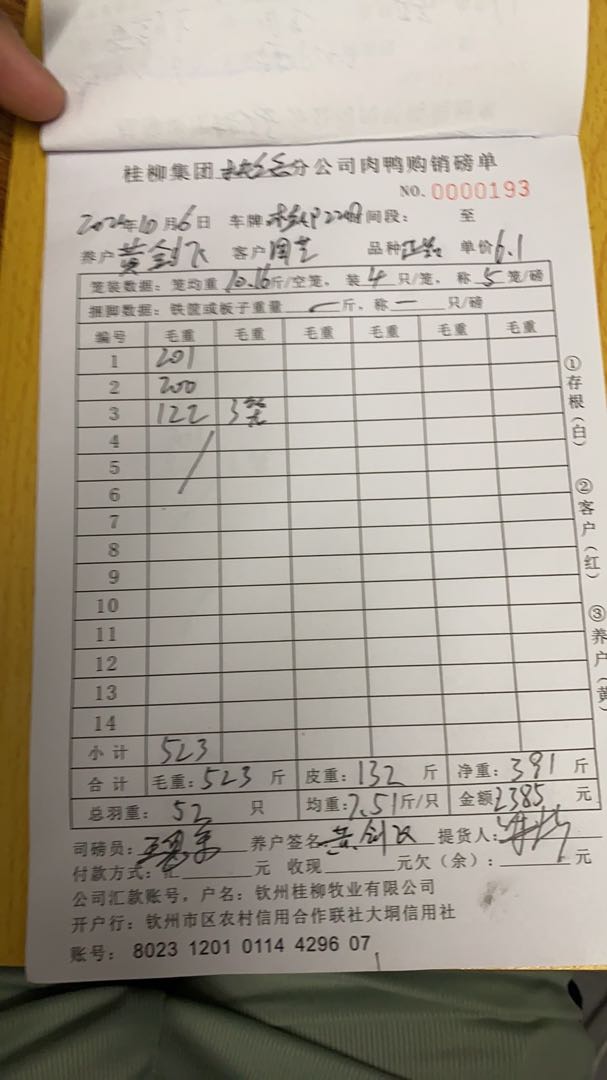 桂柳集团 分公司肉鸭购销磅单
NO. 0000193
2024年10月6日 车牌 间段： 至
养户 黄剑飞 客户 周艺 品种 单价 6.1
笼装数据：笼均重 10.16 斤/空笼，装 4 只/笼，称 5 笼/磅
捆脚数据：铁筐或板子重量 斤，称 只/磅
编号 毛重 毛重 毛重 毛重 毛重 毛重
1 201
2 200
3 122 3笼
4
5
6
7
8
9
10
11
12
13
14
小计 523
合计 毛重：523 斤 皮重：132 斤 净重：391 斤
总羽重：52 只 均重：7.51 斤/只 金额 2385 元
司磅员： 养户签名 黄剑飞 提货人：
付款方式：汇 元 收现 元欠（余）： 元
公司汇款账号，户名：钦州桂柳牧业有限公司
开户行：钦州市区农村信用合作联社大垌信用社
账号： 8023 1201 0114 4296 07
①存根（白）
②客户（红）
③养户（黄）